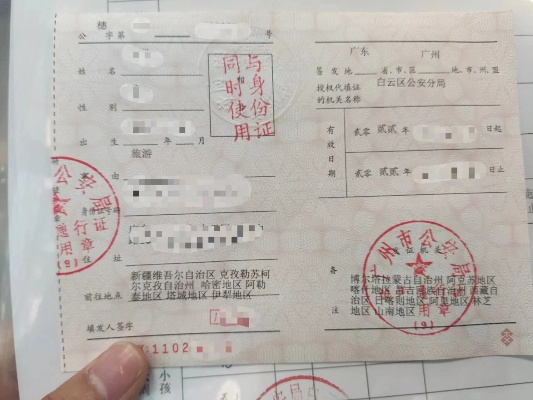 穗
公 字第 号
姓 名
性 别
出 生 年 月 日
旅游
事 由
身份证号码
住 址
新疆维吾尔自治区 克孜勒苏柯
尔克孜自治州 哈密地区 阿勒
前往地点
泰地区 塔城地区 伊犁地区
填发人签字
1102
与身份证
同时使用
广东 广州
签发地 省.市.区 地.市.州.盟
授权代填证 白云区公安分局
的机关名称
有效日期
贰零 贰贰 年 日起
贰零 贰贰 年 日止
发证机关
备
注
博尔塔拉蒙古自治州 阿克苏地区
喀什地区 昌吉回族自治州 西藏自
治区 日喀则地区 阿里地区 林芝
地区 山南地区
广州市公安局
(9)
公安局
行证
用章
(9)
小孩